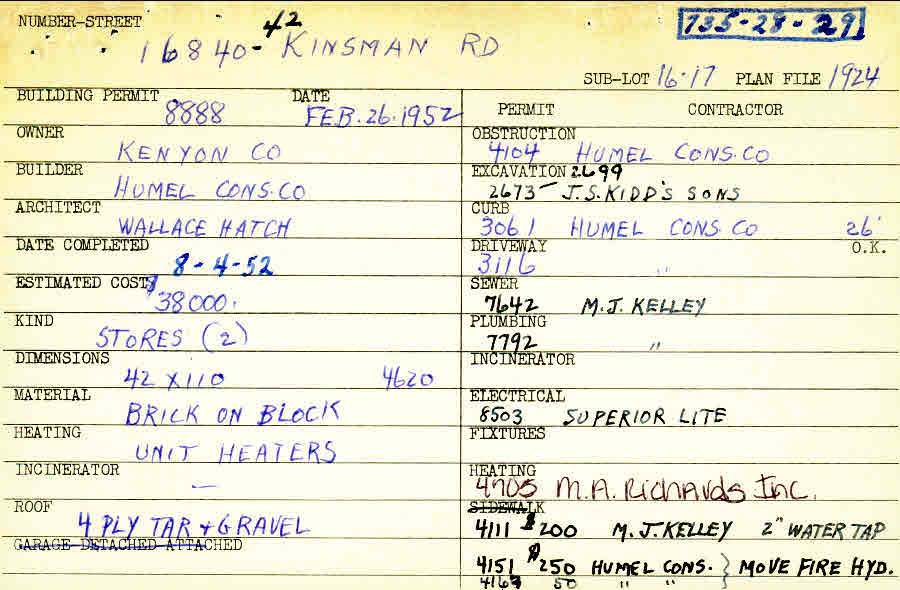 NUMBER-STREET
16840-42 KINSMAN RD
735-28-29
SUB-LOT 16-17 PLAN FILE 1924
BUILDING PERMIT DATE
8888 FEB. 26. 1952
OWNER
KENYON CO
BUILDER
HUMEL CONS. CO
ARCHITECT
WALLACE HATCH
DATE COMPLETED
8-4-52
ESTIMATED COST
$38000.
KIND
STORES (2)
DIMENSIONS
42 X 110 4620
MATERIAL
BRICK ON BLOCK
HEATING
UNIT HEATERS
INCINERATOR
—
ROOF
4 PLY TAR + GRAVEL
GARAGE-DETACHED-ATTACHED
PERMIT CONTRACTOR
OBSTRUCTION
4104 HUMEL CONS. CO
EXCAVATION 2699
2673 - J.S. KIDD'S SONS
CURB
3061 HUMEL CONS. CO 26'
DRIVEWAY O.K.
3116 "
SEWER
7642 M.J. KELLEY
PLUMBING
7792 "
INCINERATOR
ELECTRICAL
8503 SUPERIOR LITE
FIXTURES
HEATING
4705 M.A. Richards Inc.
SIDEWALK
4111 $200 M.J. KELLEY 2" WATER TAP
4151 $250 HUMEL CONS. } MOVE FIRE HYD.
50 " "